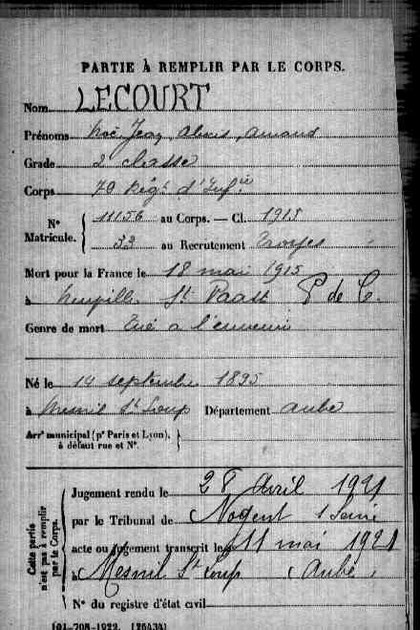 PARTIE À REMPLIR PAR LE CORPS.
Nom LECOURT
Prénoms Noë Jean, Alexis, Amand
Grade 2e classe
Corps 70 Régt d'Infie
N° Matricule. 11156 au Corps. — Cl. 1915
32 au Recrutement Troyes
Mort pour la France le 18 mai 1915
à Neuville St Vaast P de C.
Genre de mort Tué à l'ennemi
Né le 14 septembre 1895
à Mesnil St Loup Département Aube
Arrt municipal (pr Paris et Lyon), à défaut rue et N°.
Cette partie n'est pas à remplir par le Corps.
Jugement rendu le 28 Avril 1921
par le Tribunal de Nogent s Seine
acte ou jugement transcrit le 11 mai 1921
à Mesnil St Loup (Aube)
N° du registre d'état civil
101-708-1922. [26434]